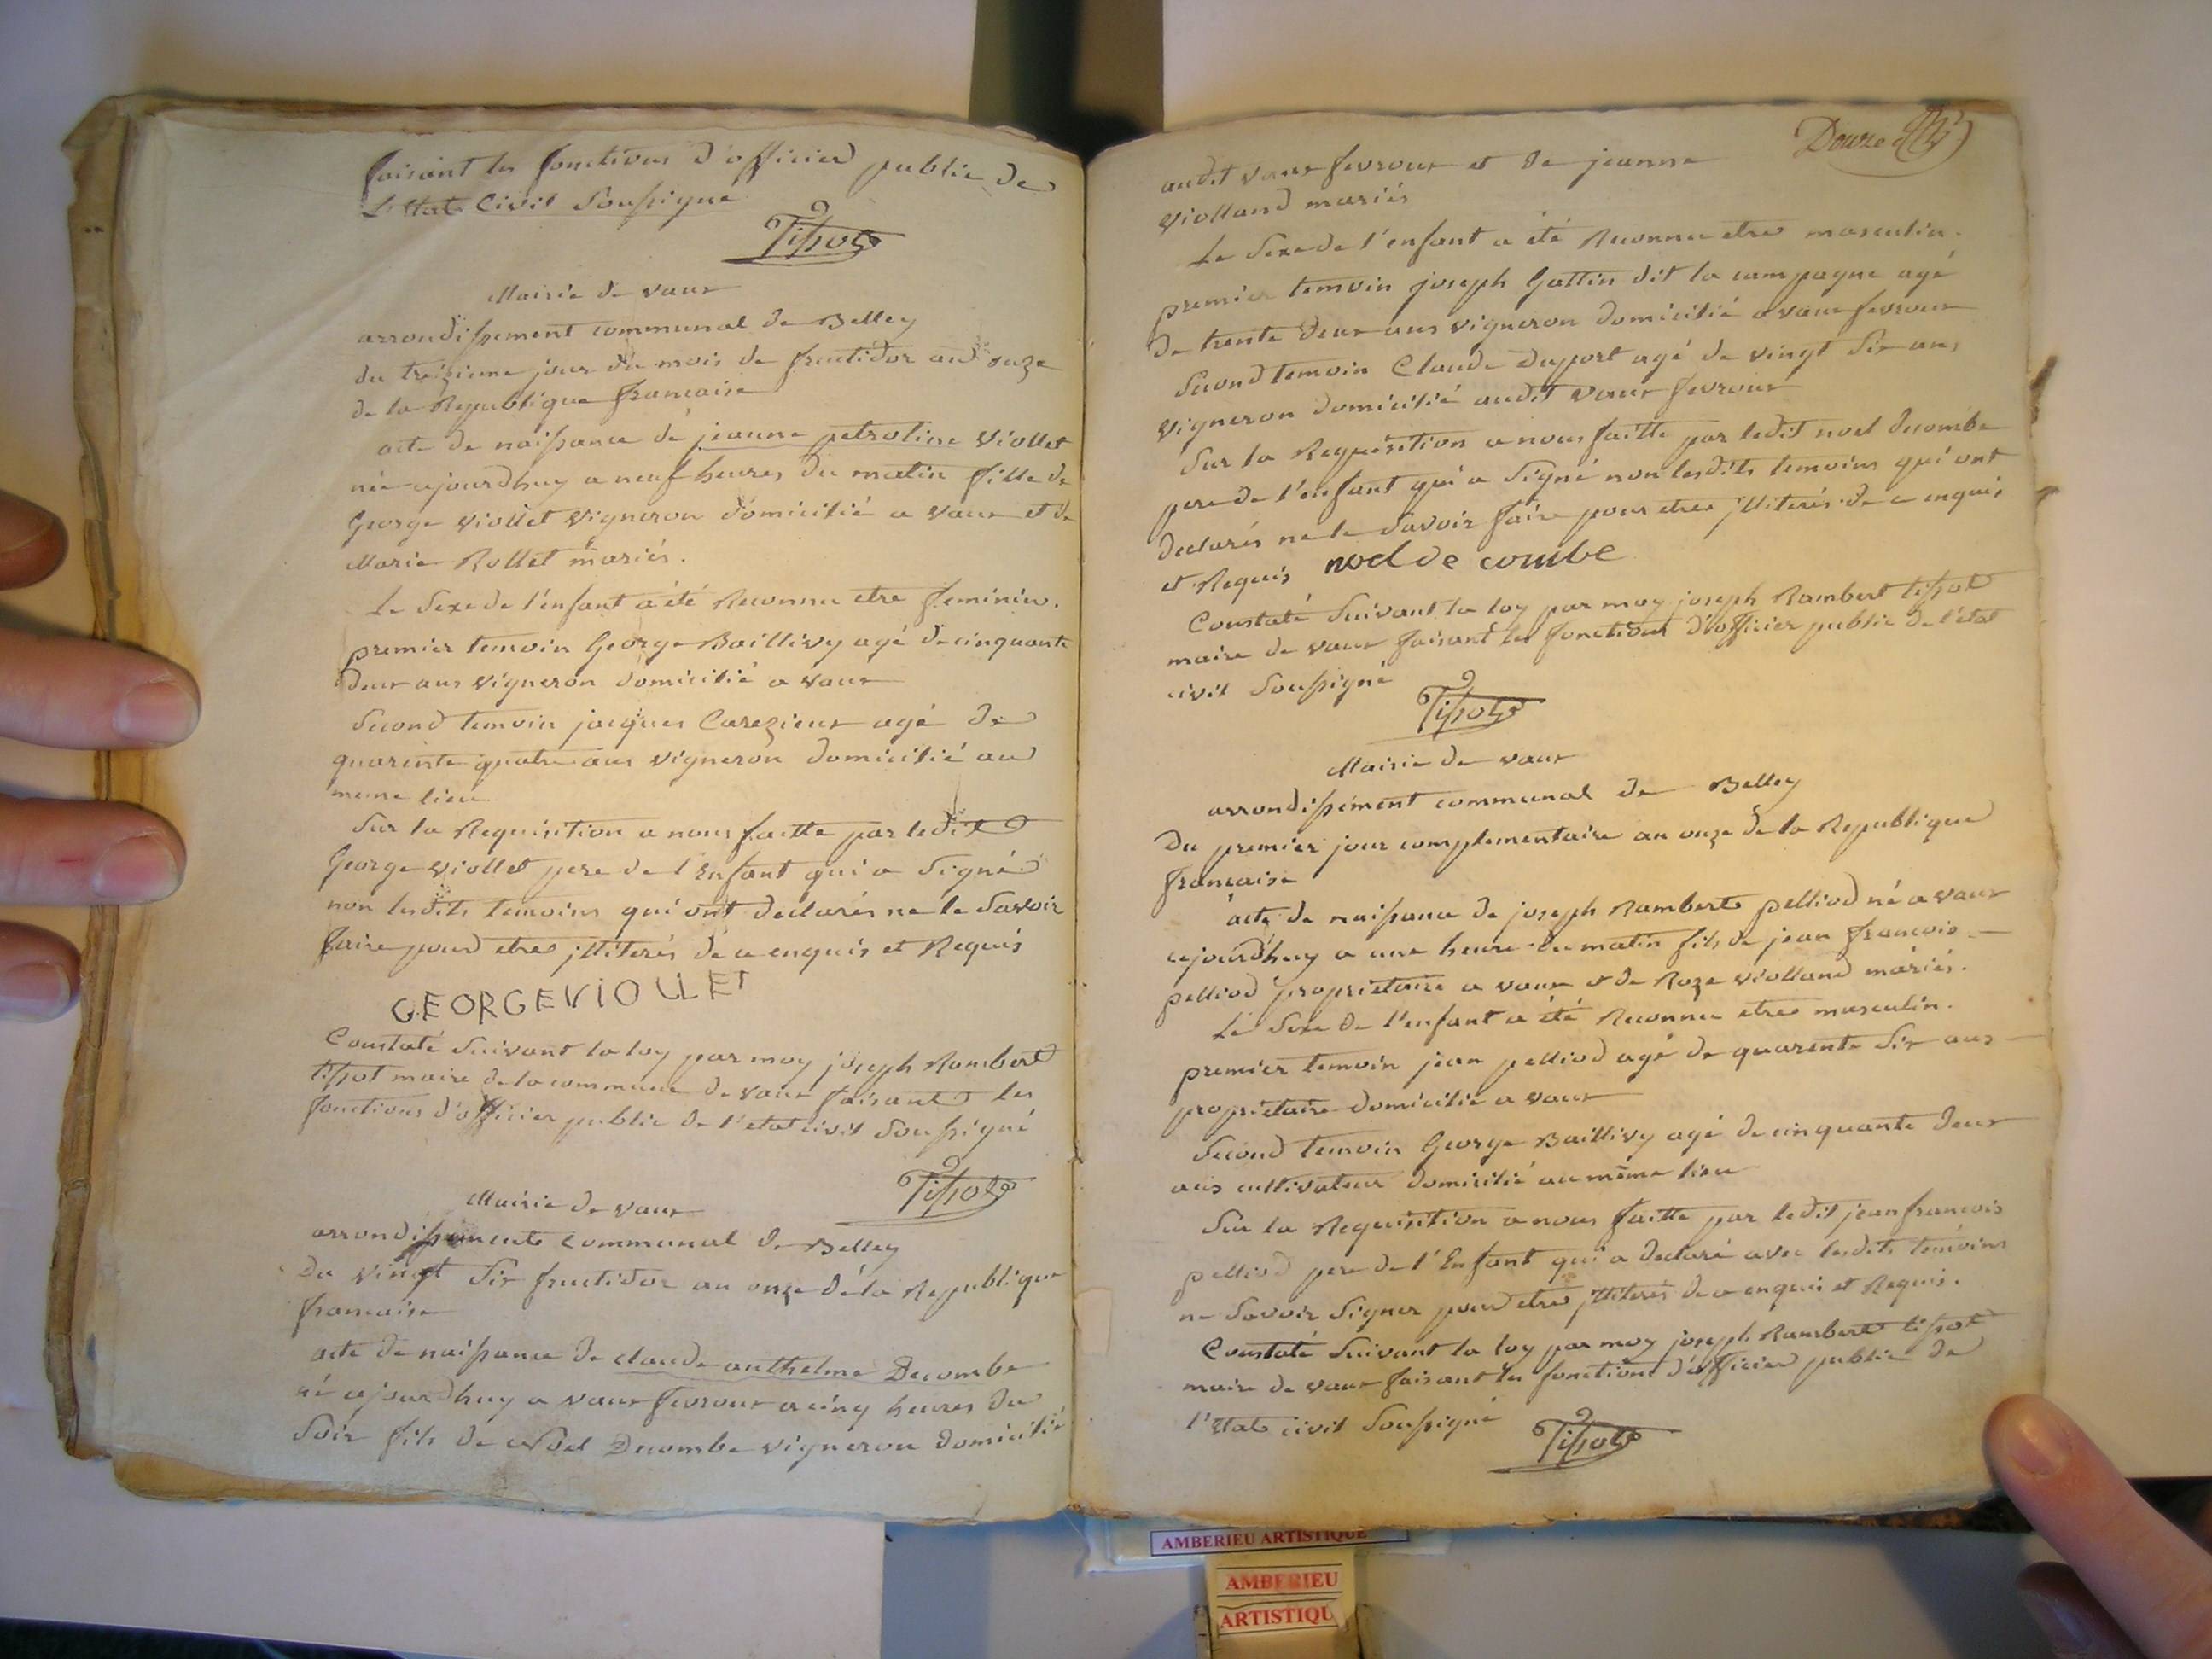 faisant les fonctions d'officier public de
L'Etat Civil Soussigné
Tissot
Mairie de vaux
arrondissement communal de Belley
du treizieme jour du mois de fructidor an onze
de la Republique francaise
acte de naissance de jeanne petroline Viollet
née cejourdhuy a neuf heures du matin fille de
George viollet vigneron domicilié a vaux et de
Marie Rollet mariés.
Le Sexe de l'enfant a été Reconnu etre feminin.
premier temoin George Baillivy agé de cinquante
deux ans vigneron domicilié a vaux
Second temoin jacques Carezieux agé de
quarente quatre ans vigneron domicilié au
meme lieu
Sur la Requisition a nous faitte par ledit
George viollet pere de l'Enfant qui a Signé
non lesdits temoins qui ont declarés ne le Savoir
faire pour etre jlliterés de ce enquis et Requis
GEORGEVIOLLET
Constaté Suivant la loy par moy joseph Rambert
tissot maire de la commune de vaux faisant les
fonctions d'officier public de l'etat civil Soussigné
Tissot
Mairie de vaux
arrondissement communal de Belley
Du vingt Six fructidor an onze de la Republique
francaise
acte de naissance de claude anthelme Decombe
né cejourdhuy a vaux fevroux a cinq heures du
Soir fils de Noel Decombe vigneron domicilié
Douze
audit vaux fevroux et de jeanne
violland mariés
Le Sexe de l'enfant a été Reconnu etre masculin.
premier temoin joseph Gattin dit la campagne agé
de trente deux ans vigneron domicilié a vaux fevroux
Second temoin Claude Duport agé de vingt Six ans
vigneron domicilié audit vaux fevroux
Sur la Requisition a nous faitte par ledit noel decombe
pere de l'enfant qui a Signé non lesdits temoins qui ont
declarés ne le Savoir faire pour etre jlliterés de ce enquis
et Requis noel de combe
Constaté Suivant la loy par moy joseph Rambert tissot
maire de vaux faisant les fonctions d'officier public de l'état
civil Soussigné
Tissot
Mairie de vaux
arrondissement communal de Belley
Du premier jour complementaire an onze de la Republique
francaise
acte de naissance de joseph Rambert pelliod né a vaux
cejourdhuy a une heure du matin fils de jean francois
pelliod proprietaire a vaux et de Roze violland mariés.
Le Sexe de l'enfant a été Reconnu etre masculin.
premier temoin jean pelliod agé de quarente Six ans
proprietaire domicilié a vaux
Second temoin George Baillivy agé de cinquante deux
ans cultivateur domicilié au même lieu
Sur la Requisition a nous faitte par ledit jean francois
pelliod pere de l'Enfant qui a declaré avec lesdits temoins
ne Savoir Signer pour etre jlliterés de ce enquis et Requis.
Constaté Suivant la loy par moy joseph Rambert tissot
maire de vaux faisant les fonctions d'officier public de
l'Etat civil Soussigné
Tissot
AMBERIEU ARTISTIQUE
AMBERIEU
ARTISTIQU